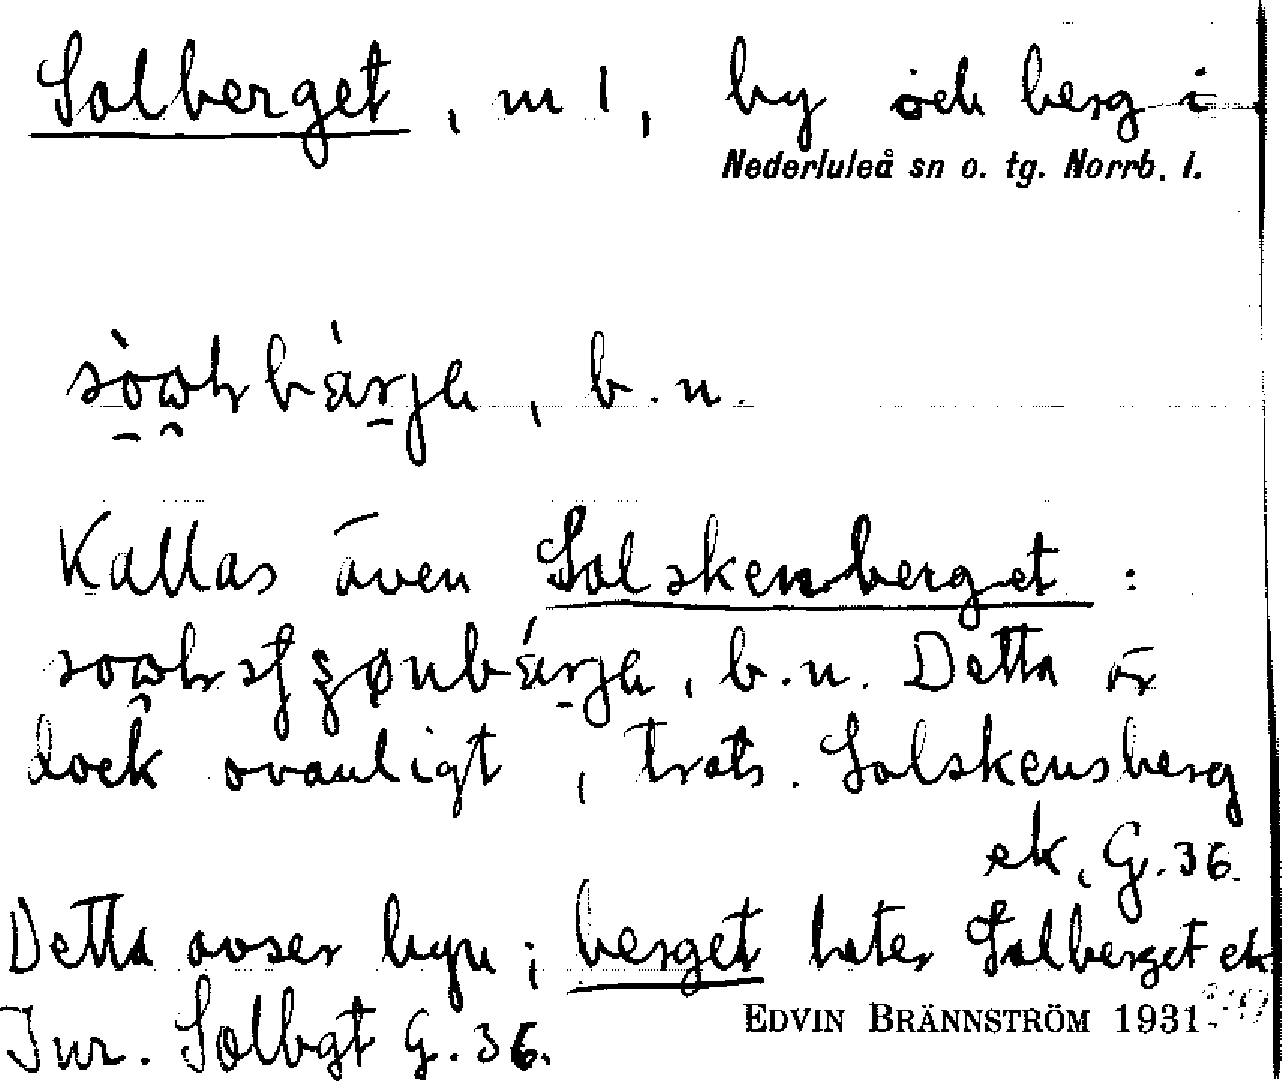 Solberget, m 1, by och berg i
Nederluleå sn o. tg. Norrb. l.
b.n.
Kallas även Solskenberget:
b.n. Detta är
dock ovanligt, trots. Solskensberg
ek. G. 36.
Detta avser byn; berget heter Solberget ek
Jur. Solbgt G. 36.
EDVIN BRÄNNSTRÖM 1931